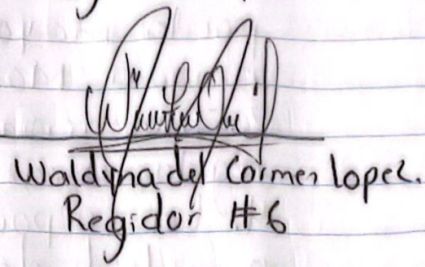 Waldyna del Carmen lopez.
Regidor #6